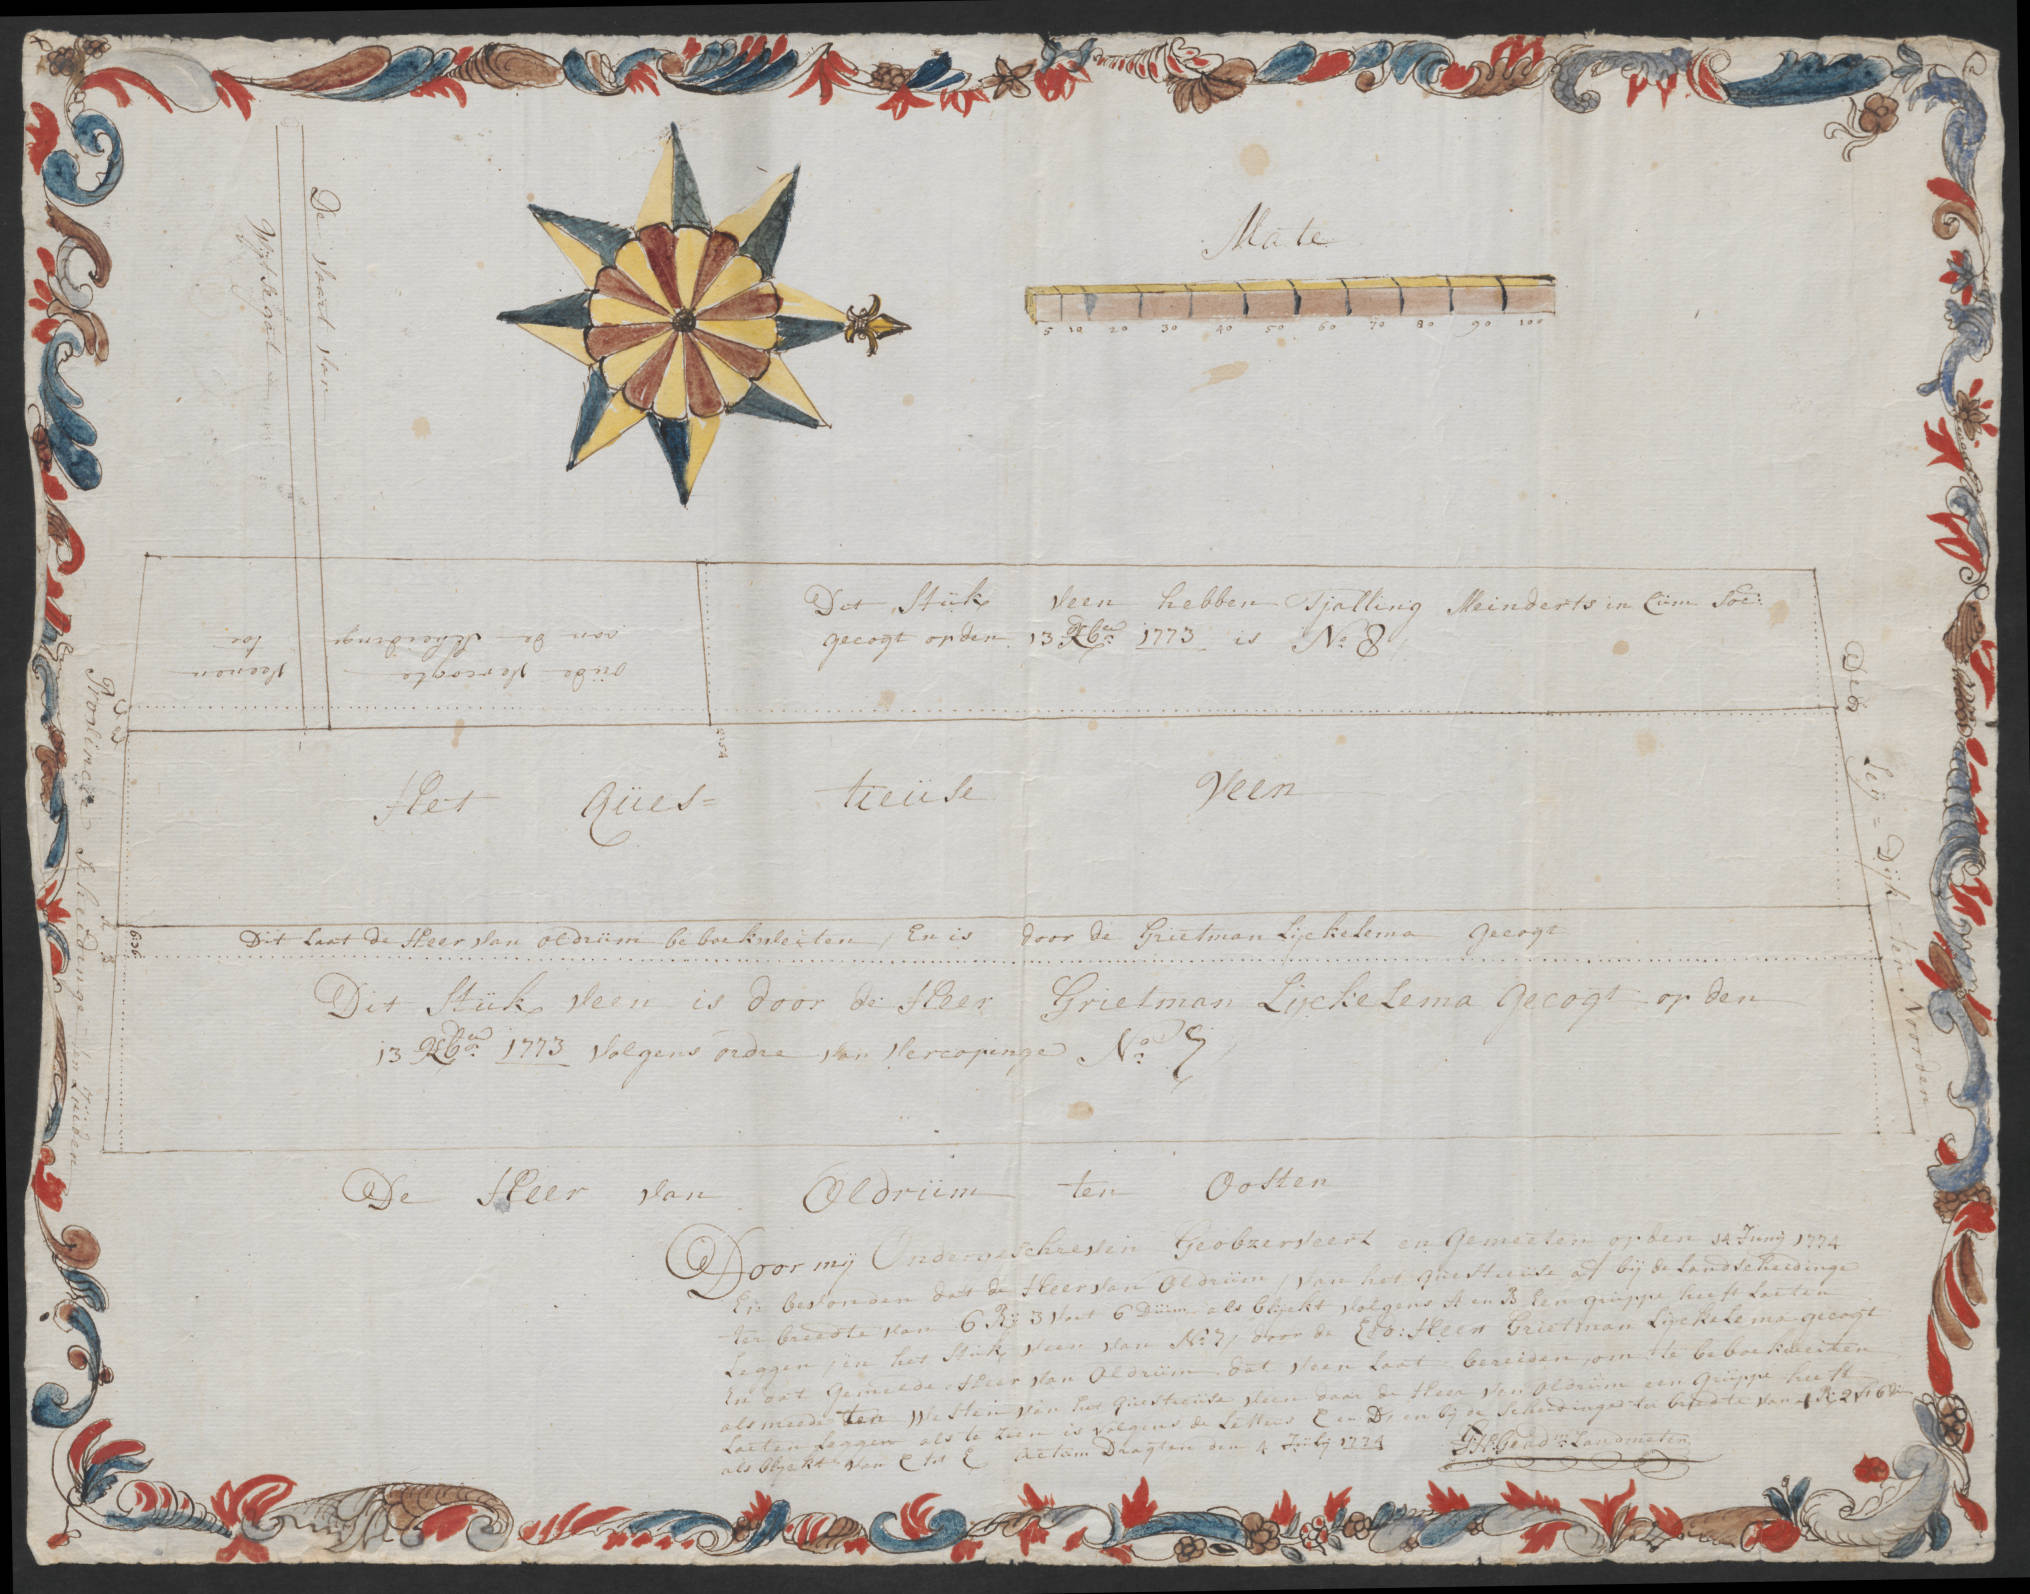 De vaart van
Wijtse gat
Mate
5 10 20 30 40 50 60 70 80 90 100
Dit Stük veen hebben Tjalling Meinderts in Cüm Soc:
gecogt op den 13 Xber 1773 is No 8
oude vercogte
van de Scheidinge
veenen
toe
Het Qües=tieüse Veen
Dit Laat de Heer van oldrüm beboekvleiten, En is door de Grietman Lyckelema gecogt
Dit Stük veen is door de Heer Grietman Lyckelema gecogt op den
13 Xber 1773 volgens ordre van vercopinge No 7
Provincie Scheidinge ten Zuiden
Leÿ=Dijk ten Noorden
De Heer van Oldrüm ten Oosten
Door mij Ondergeschreven Geobzerveert en Gemeeten op den 14 Junij 1774
En bevonden dat de Heer van Oldrüm, van het questieüse af bij de Landscheidinge
ter breedte van 6 R: 3 voet 6 Düim als blijkt volgens A en B Een grüppe heeft Laeten
Leggen, in het Stük veen van No 7, door de Heer Grietman Lyckelema gecogt
En dat Gemelde Heer van Oldrüm dat veen Laat bereiden, om te beboekweiten
als meede ten Westen van het questieüse veen daar de Heer van Oldrüm een grüppe heeft
Laeten Leggen als te zien is volgens de Letters C en D, en bij de Scheidinge ter breedte van 1 R: 2 v 6 D
als blijckt van C tot E Actüm Dragten den 4 Jülij 1774
Landmeter